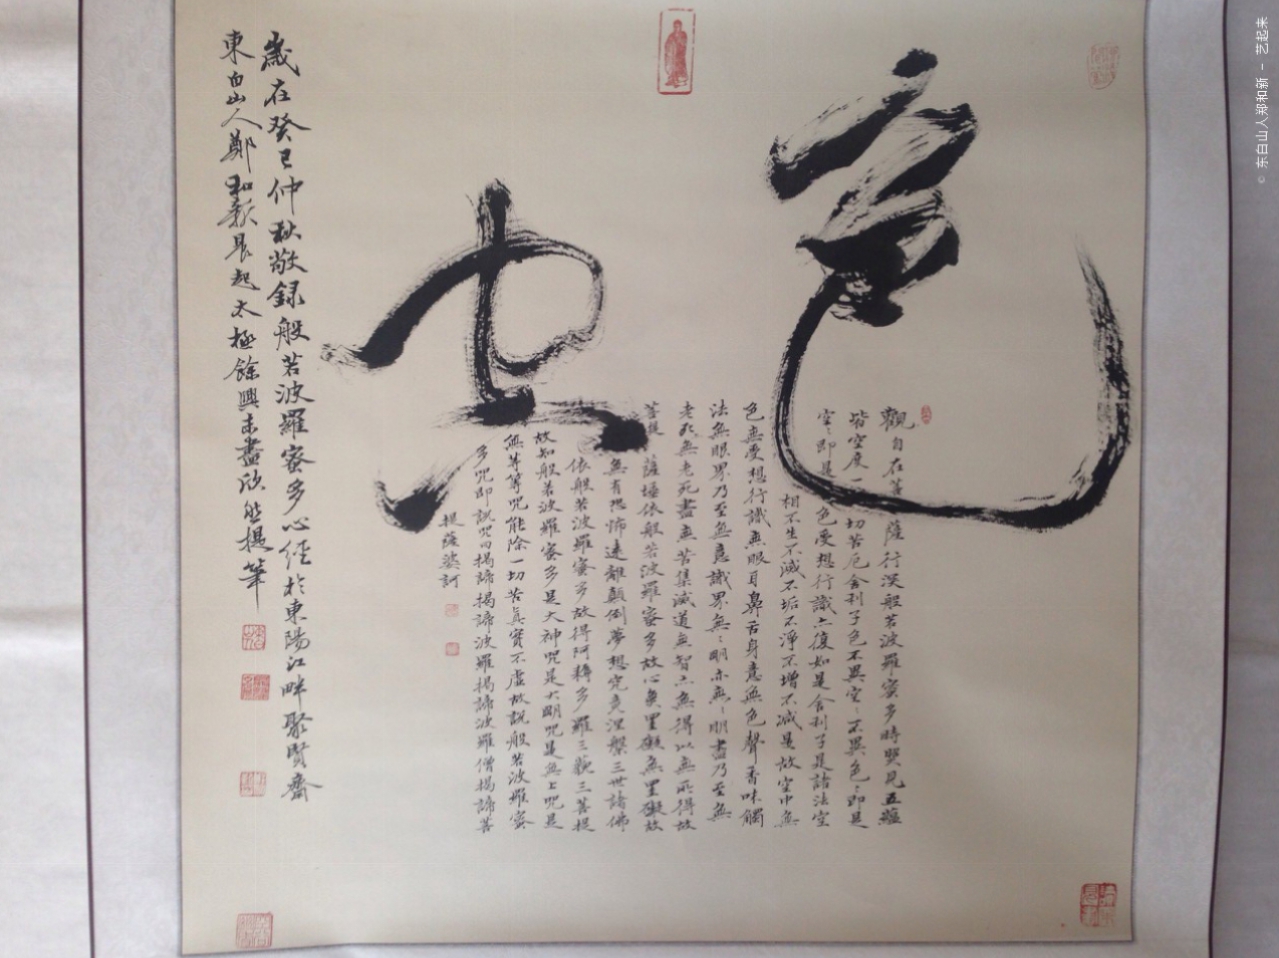 色空
觀自在菩薩行深般若波羅蜜多時照見五蘊
皆空度一切苦厄舍利子色不異空〻不異色〻即是
空〻即是色受想行識亦復如是舍利子是諸法空
相不生不滅不垢不淨不增不減是故空中無
色無受想行識無眼耳鼻舌身意無色聲香味觸
法無眼界乃至無意識界無〻明亦無〻明盡乃至無
老死無老死盡無苦集滅道無智亦無得以無所得故
菩提薩埵依般若波羅蜜多故心無罣礙無罣礙故
無有恐怖遠離顛倒夢想究竟涅槃三世諸佛
依般若波羅蜜多故得阿耨多羅三藐三菩提
故知般若波羅蜜多是大神咒是大明咒是無上咒是
無等等咒能除一切苦真實不虛故說般若波羅蜜
多咒即說咒曰揭諦揭諦波羅揭諦波羅僧揭諦菩
提薩婆訶
歲在癸巳仲秋敬録般若波羅蜜多心經於東陽江畔聚賢齋
東白山人鄭和新晨起太極餘興未盡欣然提筆
© 东白山人郑和新 - 艺起来